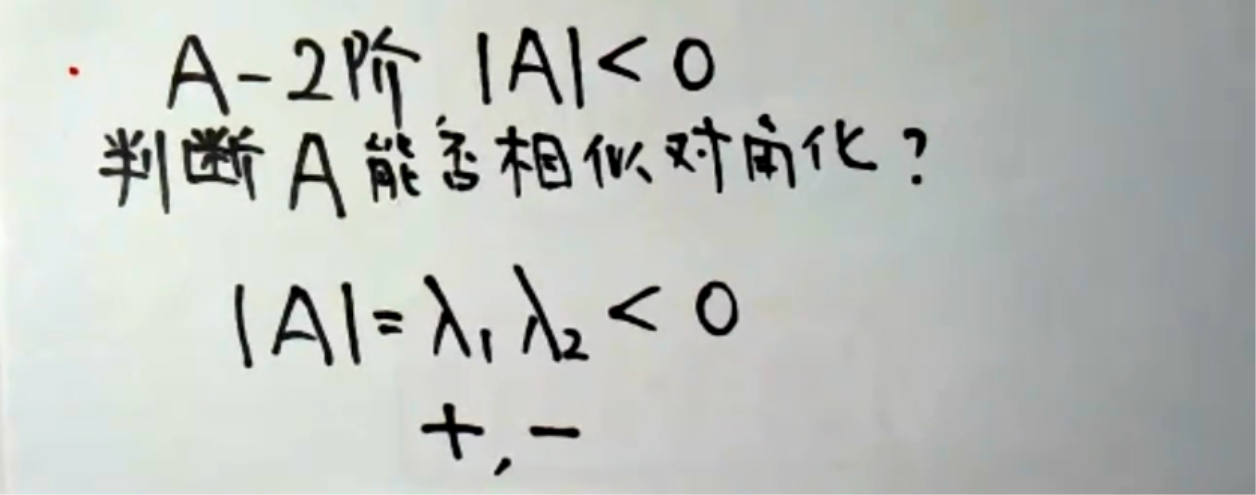 A-2阶 |A|<0
判断A能否相似对角化?
|A|=λ₁λ₂<0
+,-